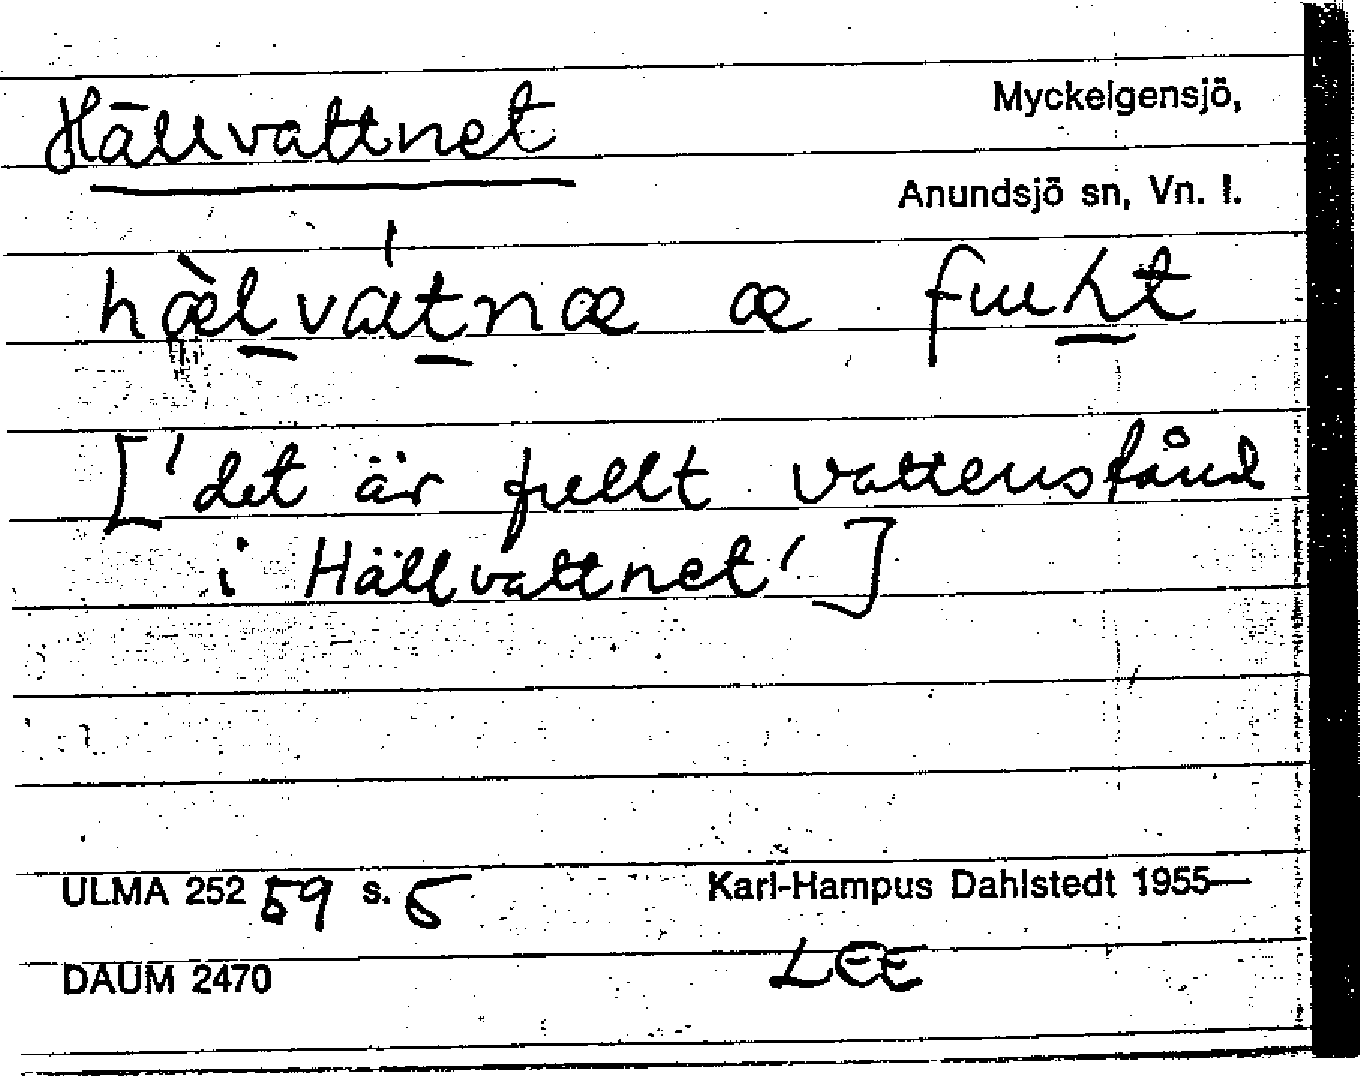 Hällvattnet
Myckelgensjö,
Anundsjö sn, Vn. l.
hæ̀lvátnæ æ
['det är fullt vattenstånd
i Hällvattnet']
ULMA 252 59 s. 5
Karl-Hampus Dahlstedt 1955—
DAUM 2470
LEE